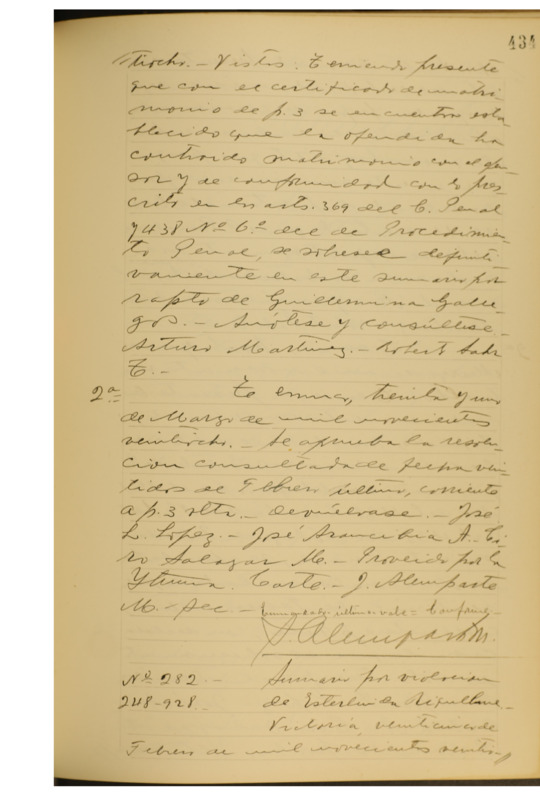 434
tiocho. — Vistos. Teniendo presente
que con el certificado de matri-
monio de p. 3 se encuentra esta
blecido que la ofendida ha
contraido matrimonio con el ofen-
sor y de conformidad con lo pres-
crito en los arts. 369 del C. Penal
y 438 Nº 6.º del de Procedimien-
to Penal, se sobresee definiti-
vamente en este sumario por
rapto de Guillermina Galle-
gos. — Anótese y consúltese —
Arturo Martinez. — Robert
T. —
2ª Temuco, treinta y uno
de Marzo de mil novecientos
veintiocho. — Se aprueba la resolu-
cion consultada de fecha vein-
tidos de Febrero último, corriente
a p. 3 vlta. — devuélvase. — José
L. Lopez. — José Arancibia A. — Ci-
ro Salazar M. — Proveido por la
Iltma. Corte. — J. Alemparte
M. — Sec — Enmendado: último: vale = Conforme —
J Alemparte M.
Nº 282. — Sumario por violacion
248-928. de
Victoria, veinticinco de
Febrero de mil novecientos veintio